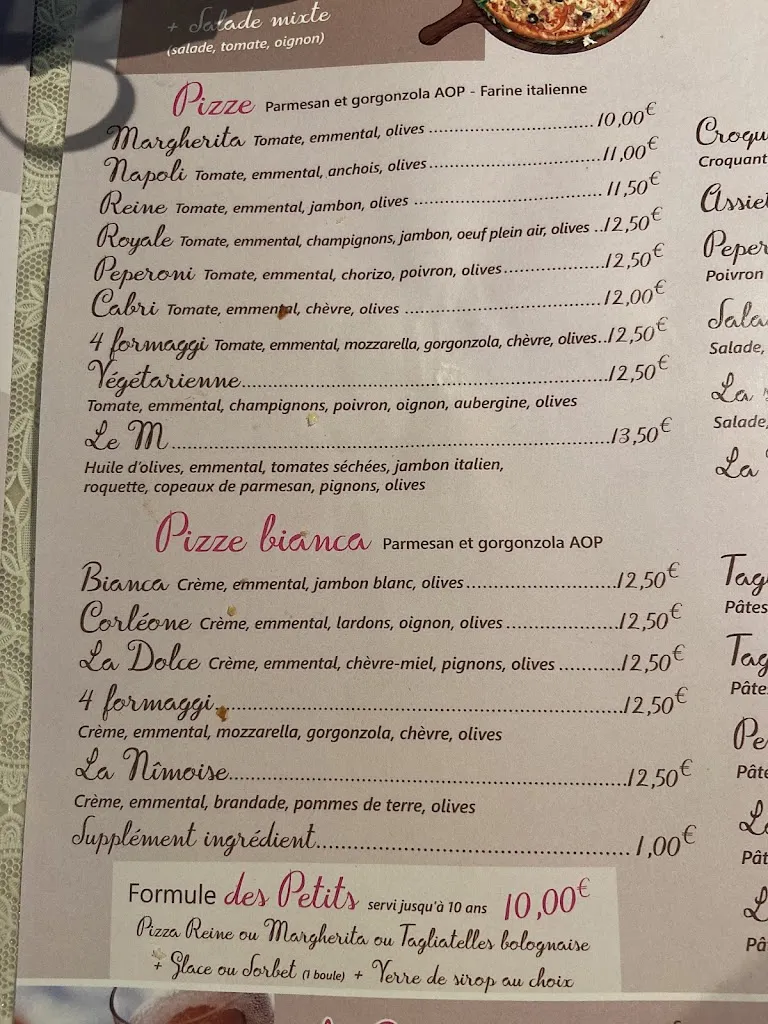 + Salade mixte
(salade, tomate, oignon)
Pizze Parmesan et gorgonzola AOP - Farine italienne
Margherita Tomate, emmental, olives ........ 10,00€
Napoli Tomate, emmental, anchois, olives ........ 11,00€
Reine Tomate, emmental, jambon, olives ........ 11,50€
Royale Tomate, emmental, champignons, jambon, oeuf plein air, olives ..12,50€
Peperoni Tomate, emmental, chorizo, poivron, olives ........ 12,50€
Cabri Tomate, emmental, chèvre, olives ........ 12,00€
4 formaggi Tomate, emmental, mozzarella, gorgonzola, chèvre, olives..12,50€
Végétarienne ........ 12,50€
Tomate, emmental, champignons, poivron, oignon, aubergine, olives
Le M ........ 13,50€
Huile d'olives, emmental, tomates séchées, jambon italien,
roquette, copeaux de parmesan, pignons, olives
Pizze bianca Parmesan et gorgonzola AOP
Bianca Crème, emmental, jambon blanc, olives ........ 12,50€
Corléone Crème, emmental, lardons, oignon, olives ........ 12,50€
La Dolce Crème, emmental, chèvre-miel, pignons, olives ........ 12,50€
4 formaggi ........ 12,50€
Crème, emmental, mozzarella, gorgonzola, chèvre, olives
La Nîmoise ........ 12,50€
Crème, emmental, brandade, pommes de terre, olives
Supplément ingrédient ........ 1,00€
Formule des Petits servi jusqu'à 10 ans 10,00€
Pizza Reine ou Margherita ou Tagliatelles bolognaise
+ Glace ou Sorbet (1 boule) + Verre de sirop au choix
Croqu
Croquant
Assiet
Peper
Poivron
Sala
Salade,
La
Salade,
La
Tag
Pâtes
Tag
Pâte
Pe
Pâte
L
Pât
L
Pâ